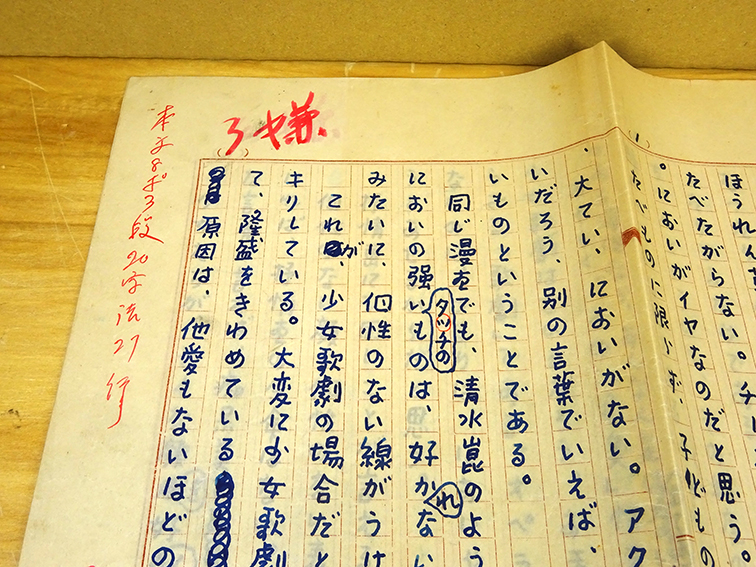 ほうれん
たべたがらない。チ
。においがイヤなのだと思う。
たべものに限らず、子どもの
、大てい、においがない。アク
いだろう、別の言葉でいえば、
いものということである。
同じ漫画でも、清水崑のよう
タッチの
においの強いものは、好かない
れ
みたいに、個性のない線がうけ
これが、少女歌劇の場合だと
キリしている。大変に少女歌劇
て、隆盛をきわめている
原因は、他愛もないほどの
様
本文8ポ3段20字詰27行